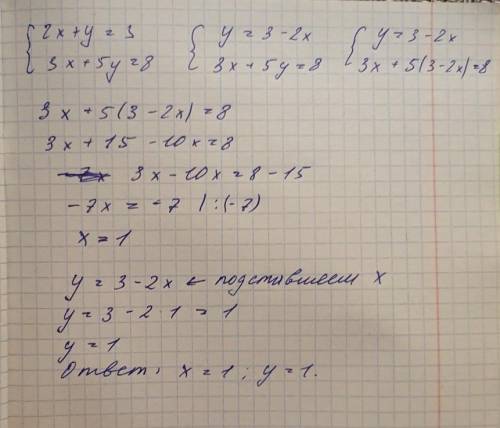 { 2x + y = 3 { y = 3 - 2x { y = 3 - 2x
3x + 5y = 8 3x + 5y = 8 3x + 5(3 - 2x) = 8
3x + 5(3 - 2x) = 8
3x + 15 - 10x = 8
3x - 10x = 8 - 15
-7x = -7 | : (-7)
x = 1
y = 3 - 2x ← подставляем x
y = 3 - 2 · 1 = 1
y = 1
Ответ: x = 1; y = 1.